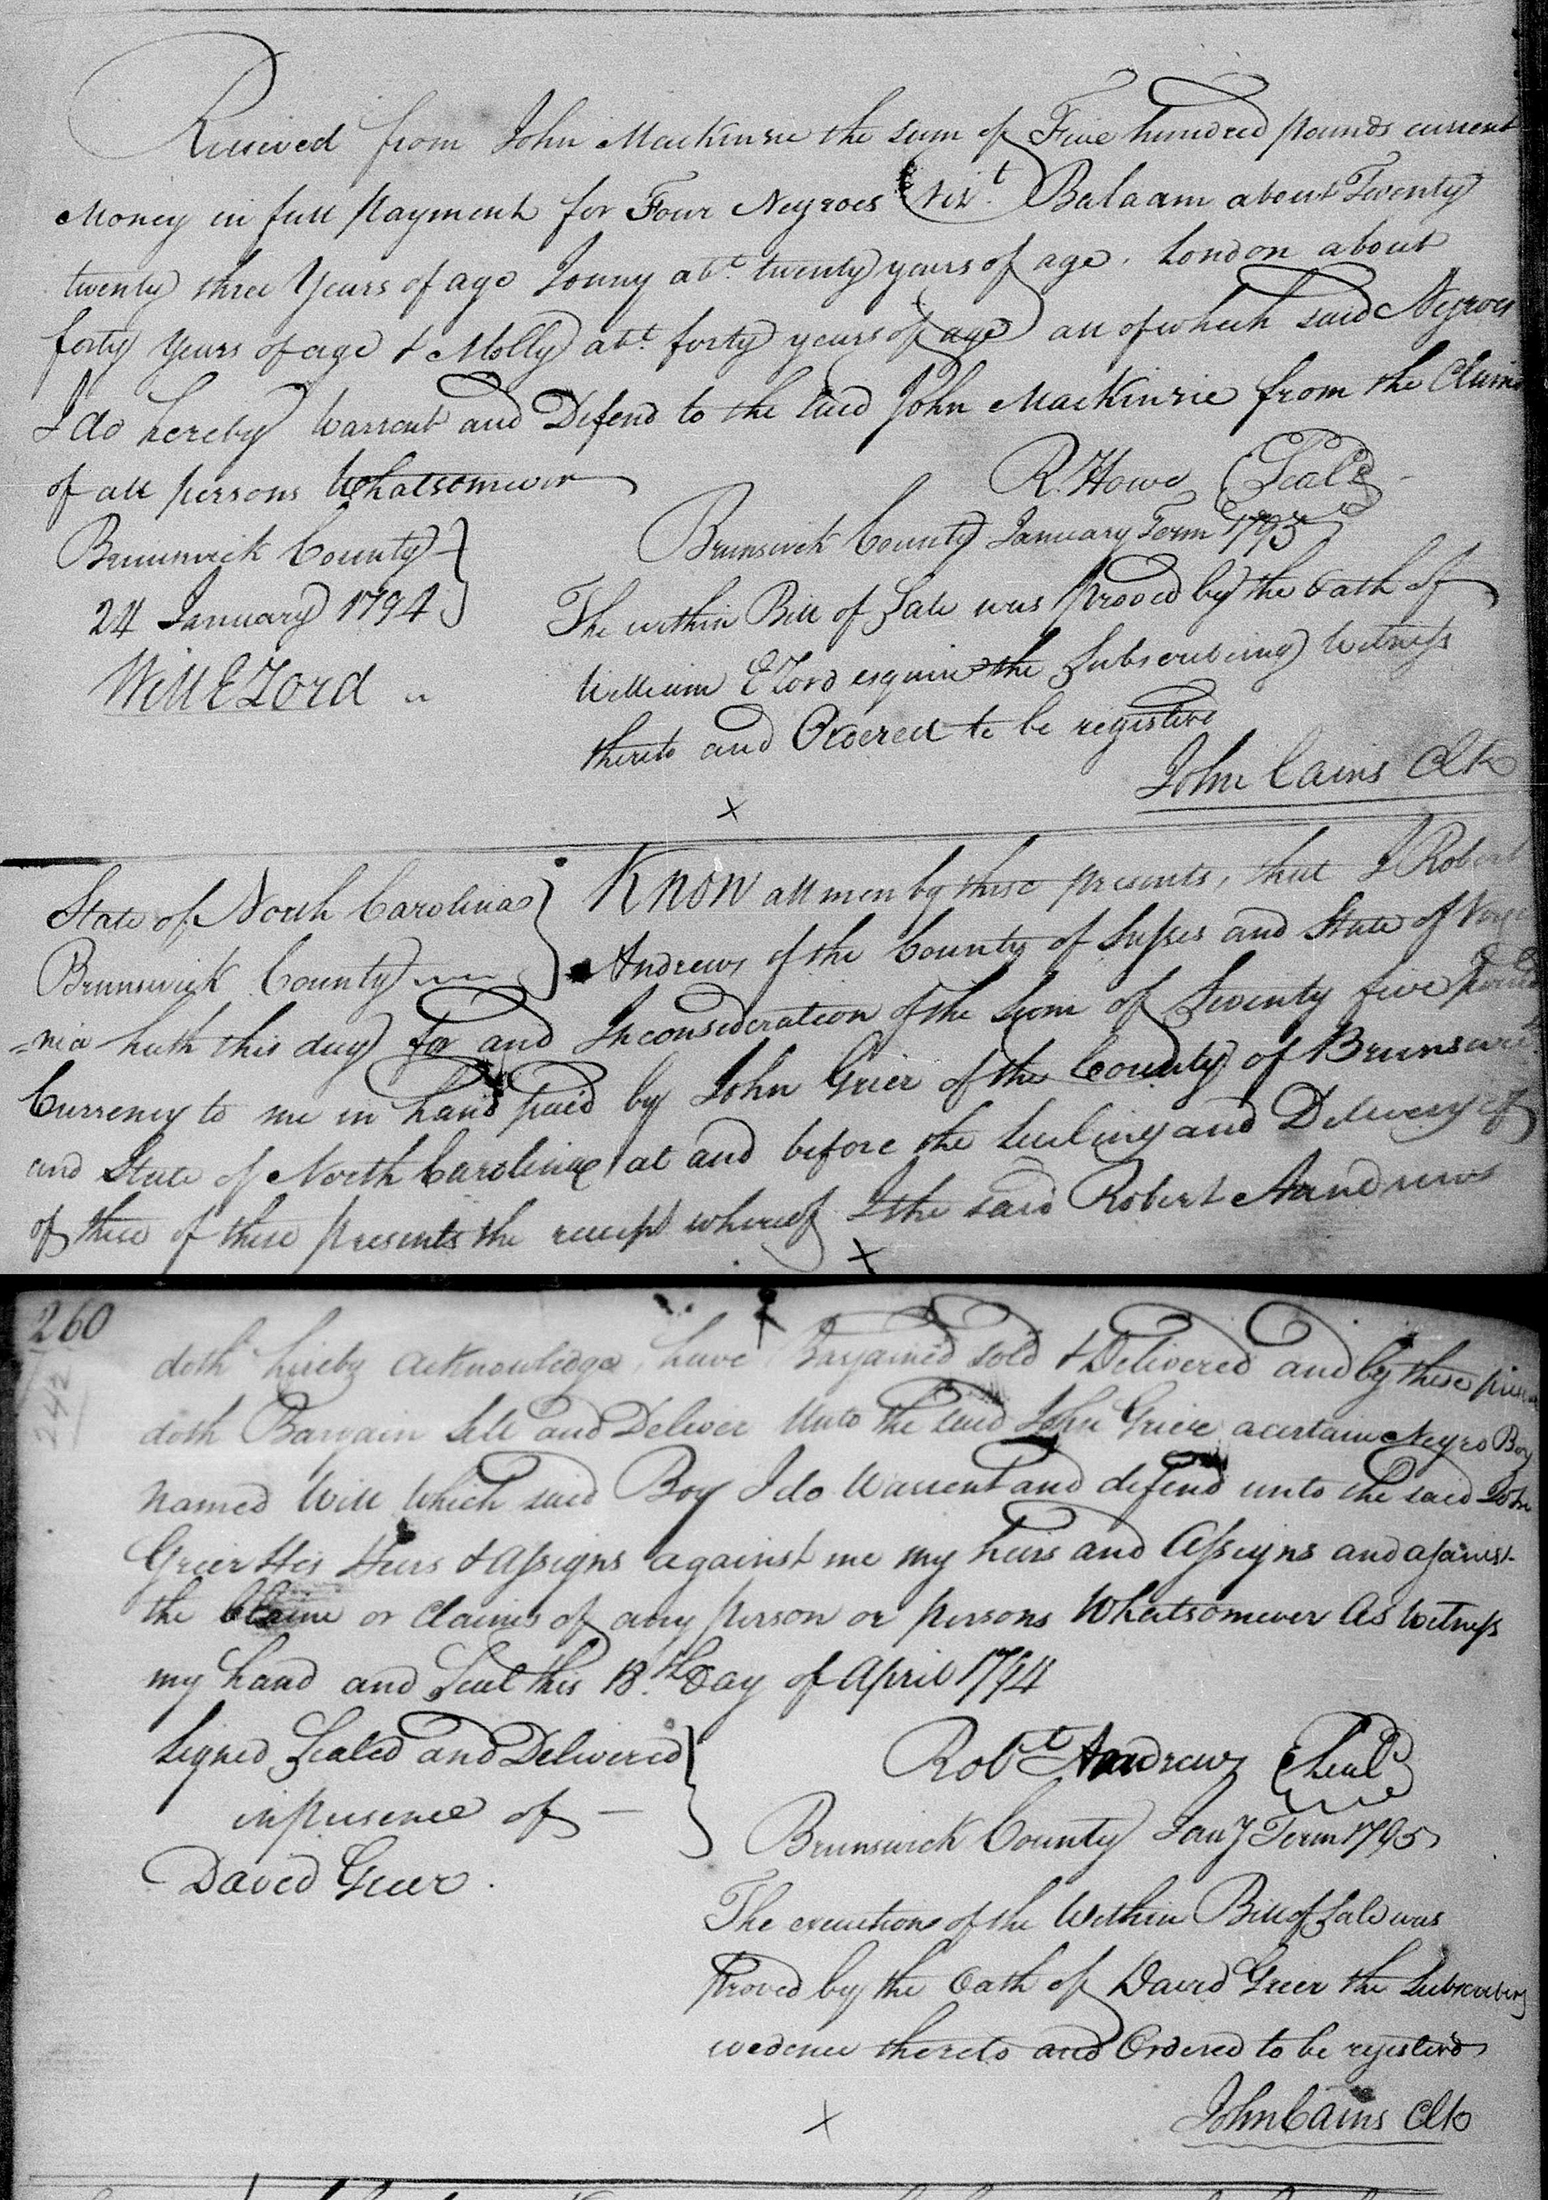 Received from John MacKinzie the sum of Five hundred pounds current
Money in full payment for Four Negroes (Vizt. Balaam about Twenty
twenty three Years of age Jonny abt. twenty years of age. London about
forty Years of age & Molly abt. forty years of age all of which said Negroes
I do hereby Warrent and Defend to the said John MacKinzie from the Claims
of all persons Whatsomever
R. Howe (Seal)
Brunswick County
24 January 1794
Will E Lord
Brunswick County January Term 1795
The within Bill of Sale was proved by the Oath of
William E Lord esquire the Subscribeing Witness
thereto and Ordered to be registerd
John Cains Clk
x
State of North Carolina
Brunswick County
Know all men by these presents, that I Robert
Andrews of the County of Sussex and State of Virgi
=nia hath this day for and Inconsideration of the Som of Seventy five pounds
Currency to me in hand paid by John Greer of the County of Brunswick
and State of North Carolina at and before the Sealing and Delivery of
of these of these presents the receipt whereof I the said Robert Andrews
x
260
242
doth hereby acknowledge, have Bargained sold & Delivered and by these
doth Bargain Sell and Deliver Unto the said John Greer a certain Negro Boy
named Will Which said Boy I do Warrent and defend unto the said John
Greer His Heirs & Assigns against me my heirs and Assigns and against
the Claim or claims of any person or persons Whatsomever As Witness
my hand and Seal this 18th. Day of April 1794
Signed Sealed and Delivered
in presence of
David Greer.
Robt Andrews (Seal)
Brunswick County Jany Term 1795
The execution of the Within Bill of Sale was
proved by the Oath of David Greer the Subscribing
evedence thereto and Ordered to be registerd
John Cains Clk
x